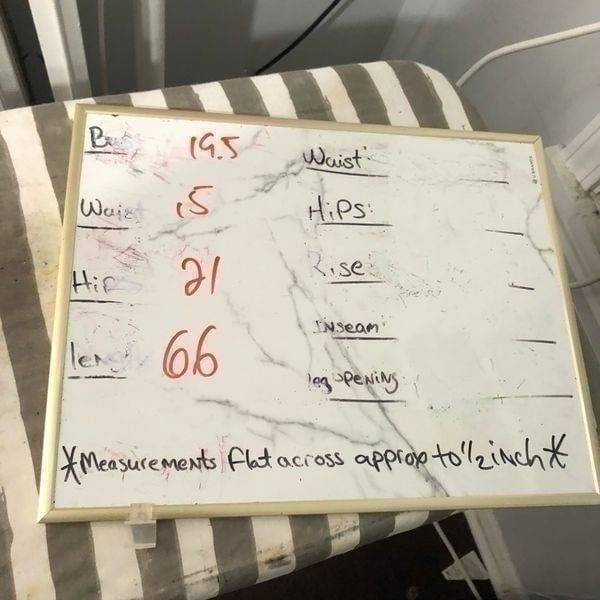 Bust 19.5
Waist 15
Hips 21
length 66
Waist:
Hips:
Rise
Inseam
leg opening
*Measurements flat across approx to 1/2 inch*